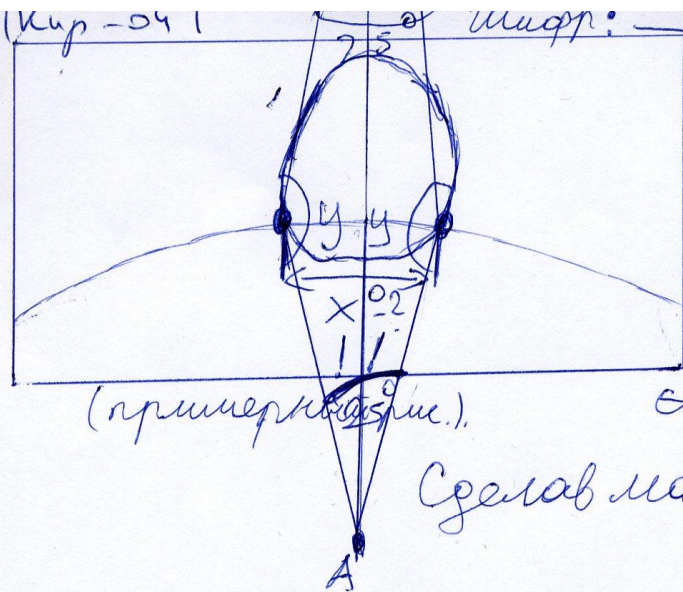 (Кир - 04)
Шифр:
25
у у
x °2
(примерный рис.).
25°
Сделав ма
A